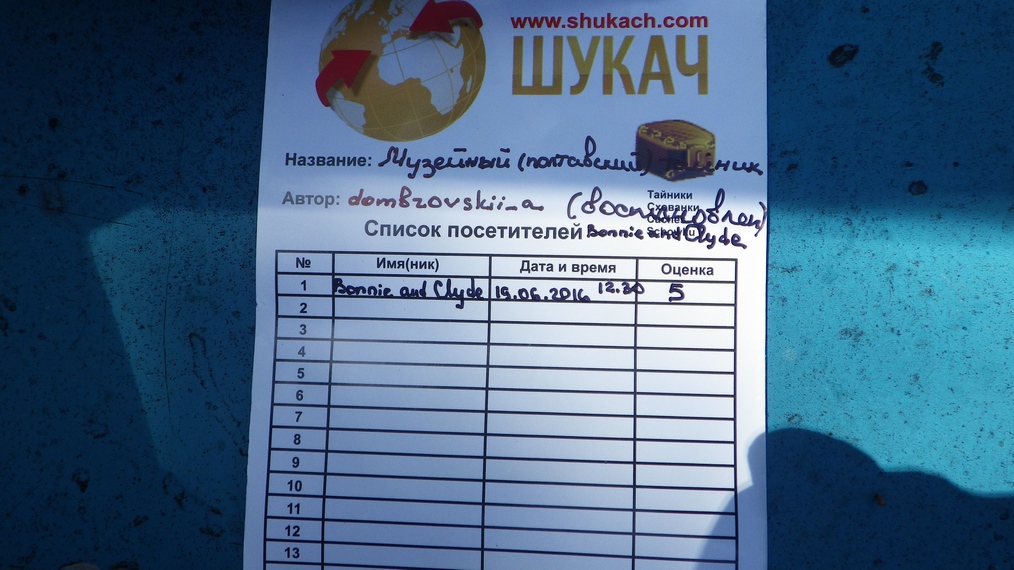 www.shukach.com
ШУКАЧ
Название: Музейный (полтавский) тайник
Автор: dombrovskii_a (восстановлен)
Тайники
Схованки
Caches
Bonnie and Clyde
Список посетителей
№ Имя(ник) Дата и время Оценка
1 Bonnie and Clyde 19.06.2016 12.30 5
2
3
4
5
6
7
8
9
10
11
12
13